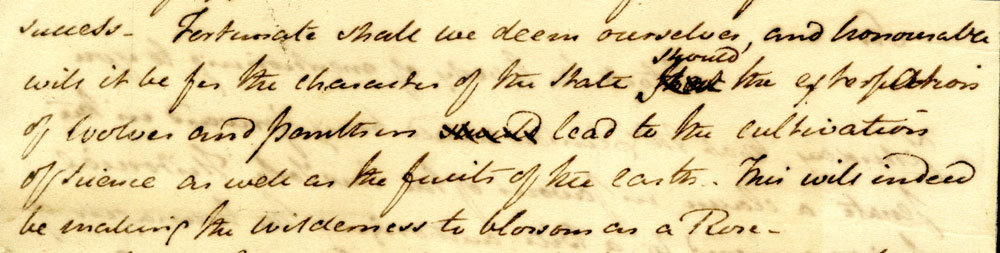 success - Fortunate shall we deem ourselves, and honourable
will it be for the character of the State should that the extirpation
of wolves and panthers should lead to the cultivation
of science as well as the fruits of the earth. This will indeed
be making the wilderness to blossom as a Rose -